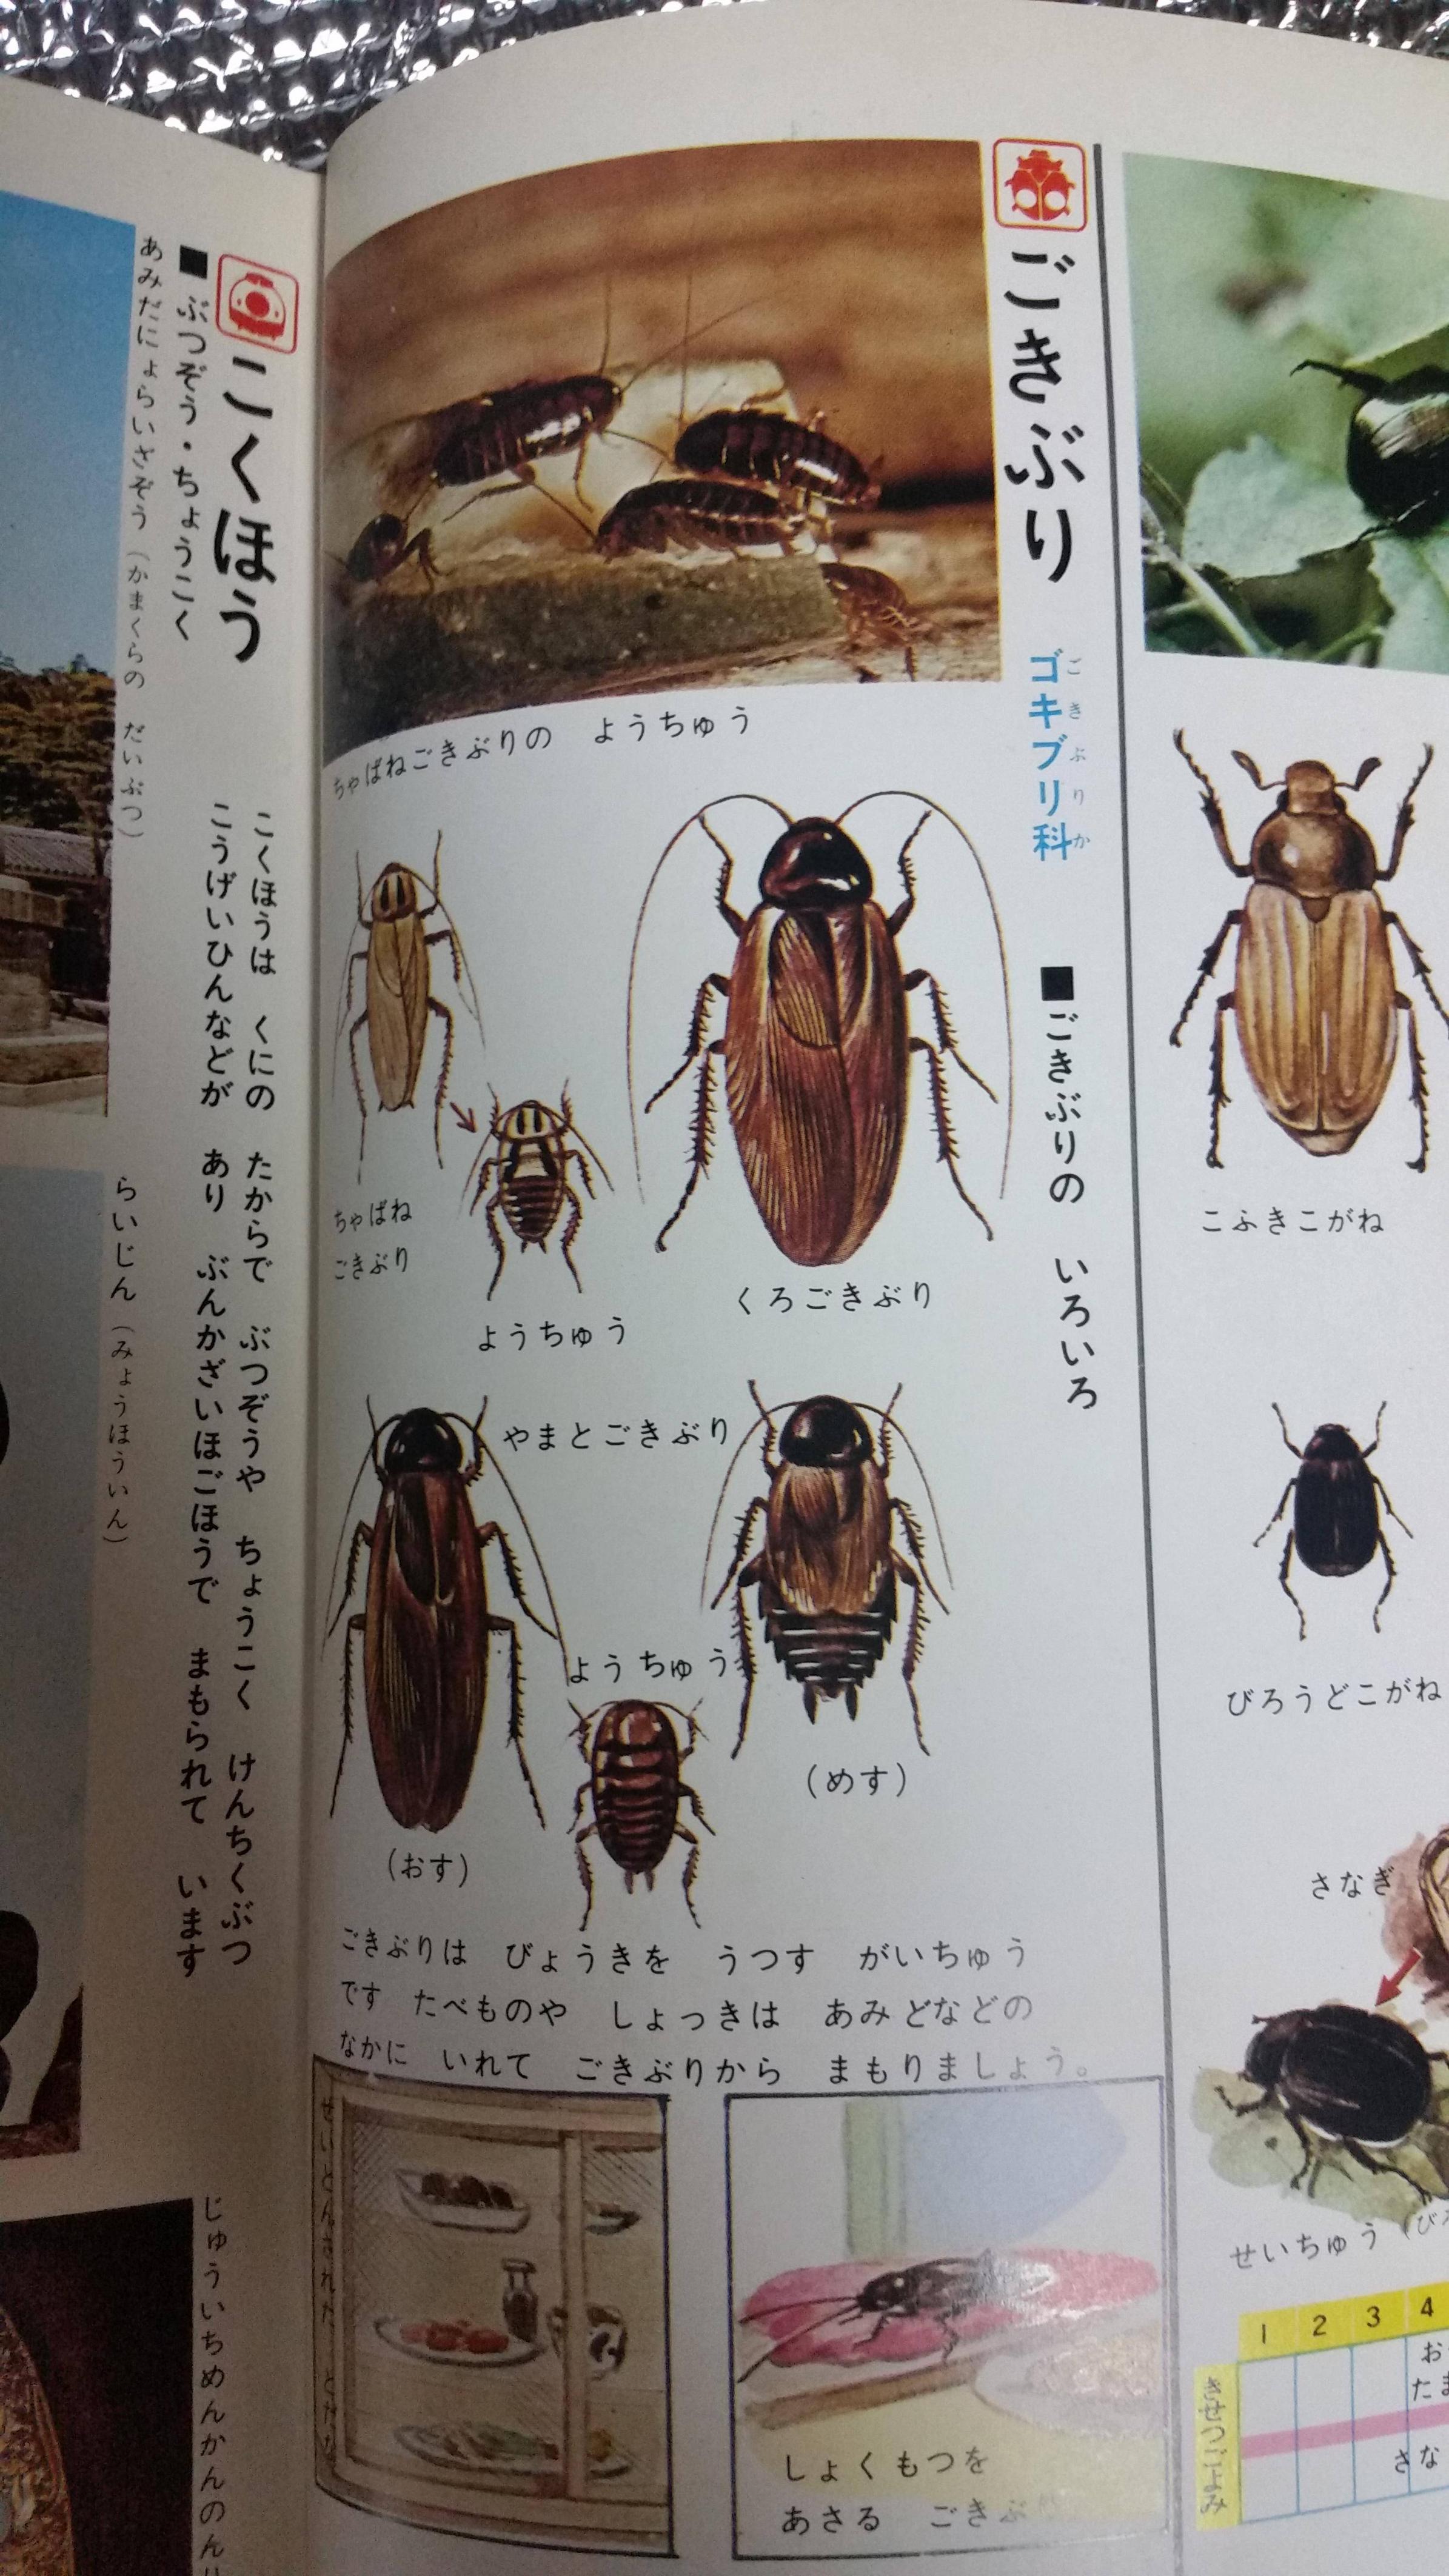 ごきぶり
ゴキブリ科
ごきぶりか
■ごきぶりの いろいろ
ちゃばねごきぶりの ようちゅう
ちゃばね
ごきぶり
ようちゅう
くろごきぶり
やまとごきぶり
ようちゅう
(おす)
(めす)
ごきぶりは びょうきを うつす がいちゅう
です たべものや しょっきは あみどなどの
なかに いれて ごきぶりから まもりましょう。
せいとんされた とだな
しょくもつを
あさる ごきぶ
こふきこがね
びろうどこがね
さなぎ
せいちゅう
1 2 3 4
きせつごよみ
お
たま
さな
こくほう
こくほうは くにの たからで ぶつぞうや ちょうこく けんちくぶつ
こうげいひんなどが あり ぶんかざいほごほうで まもられて います
■ぶつぞう・ちょうこく
あみだにょらいざぞう(かまくらの だいぶつ)
らいじん(みょうほういん)
じゅういちめんかんのん